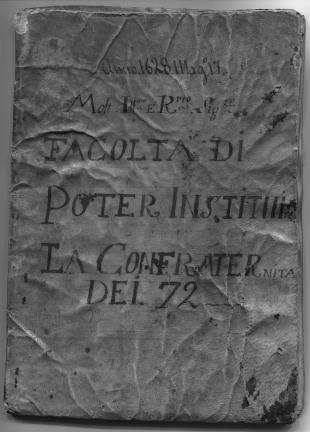 Anno 1628 Magº 17.
Molt Ill.re E R.mo Sig.re
FACOLTA DI
POTER INSTITUIR
LA CONFRATERNITA
DEI 72